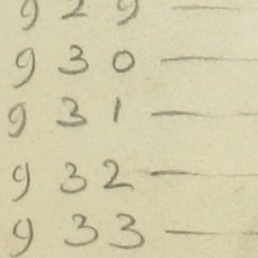 929 —
930 —
931 —
932 —
933 —